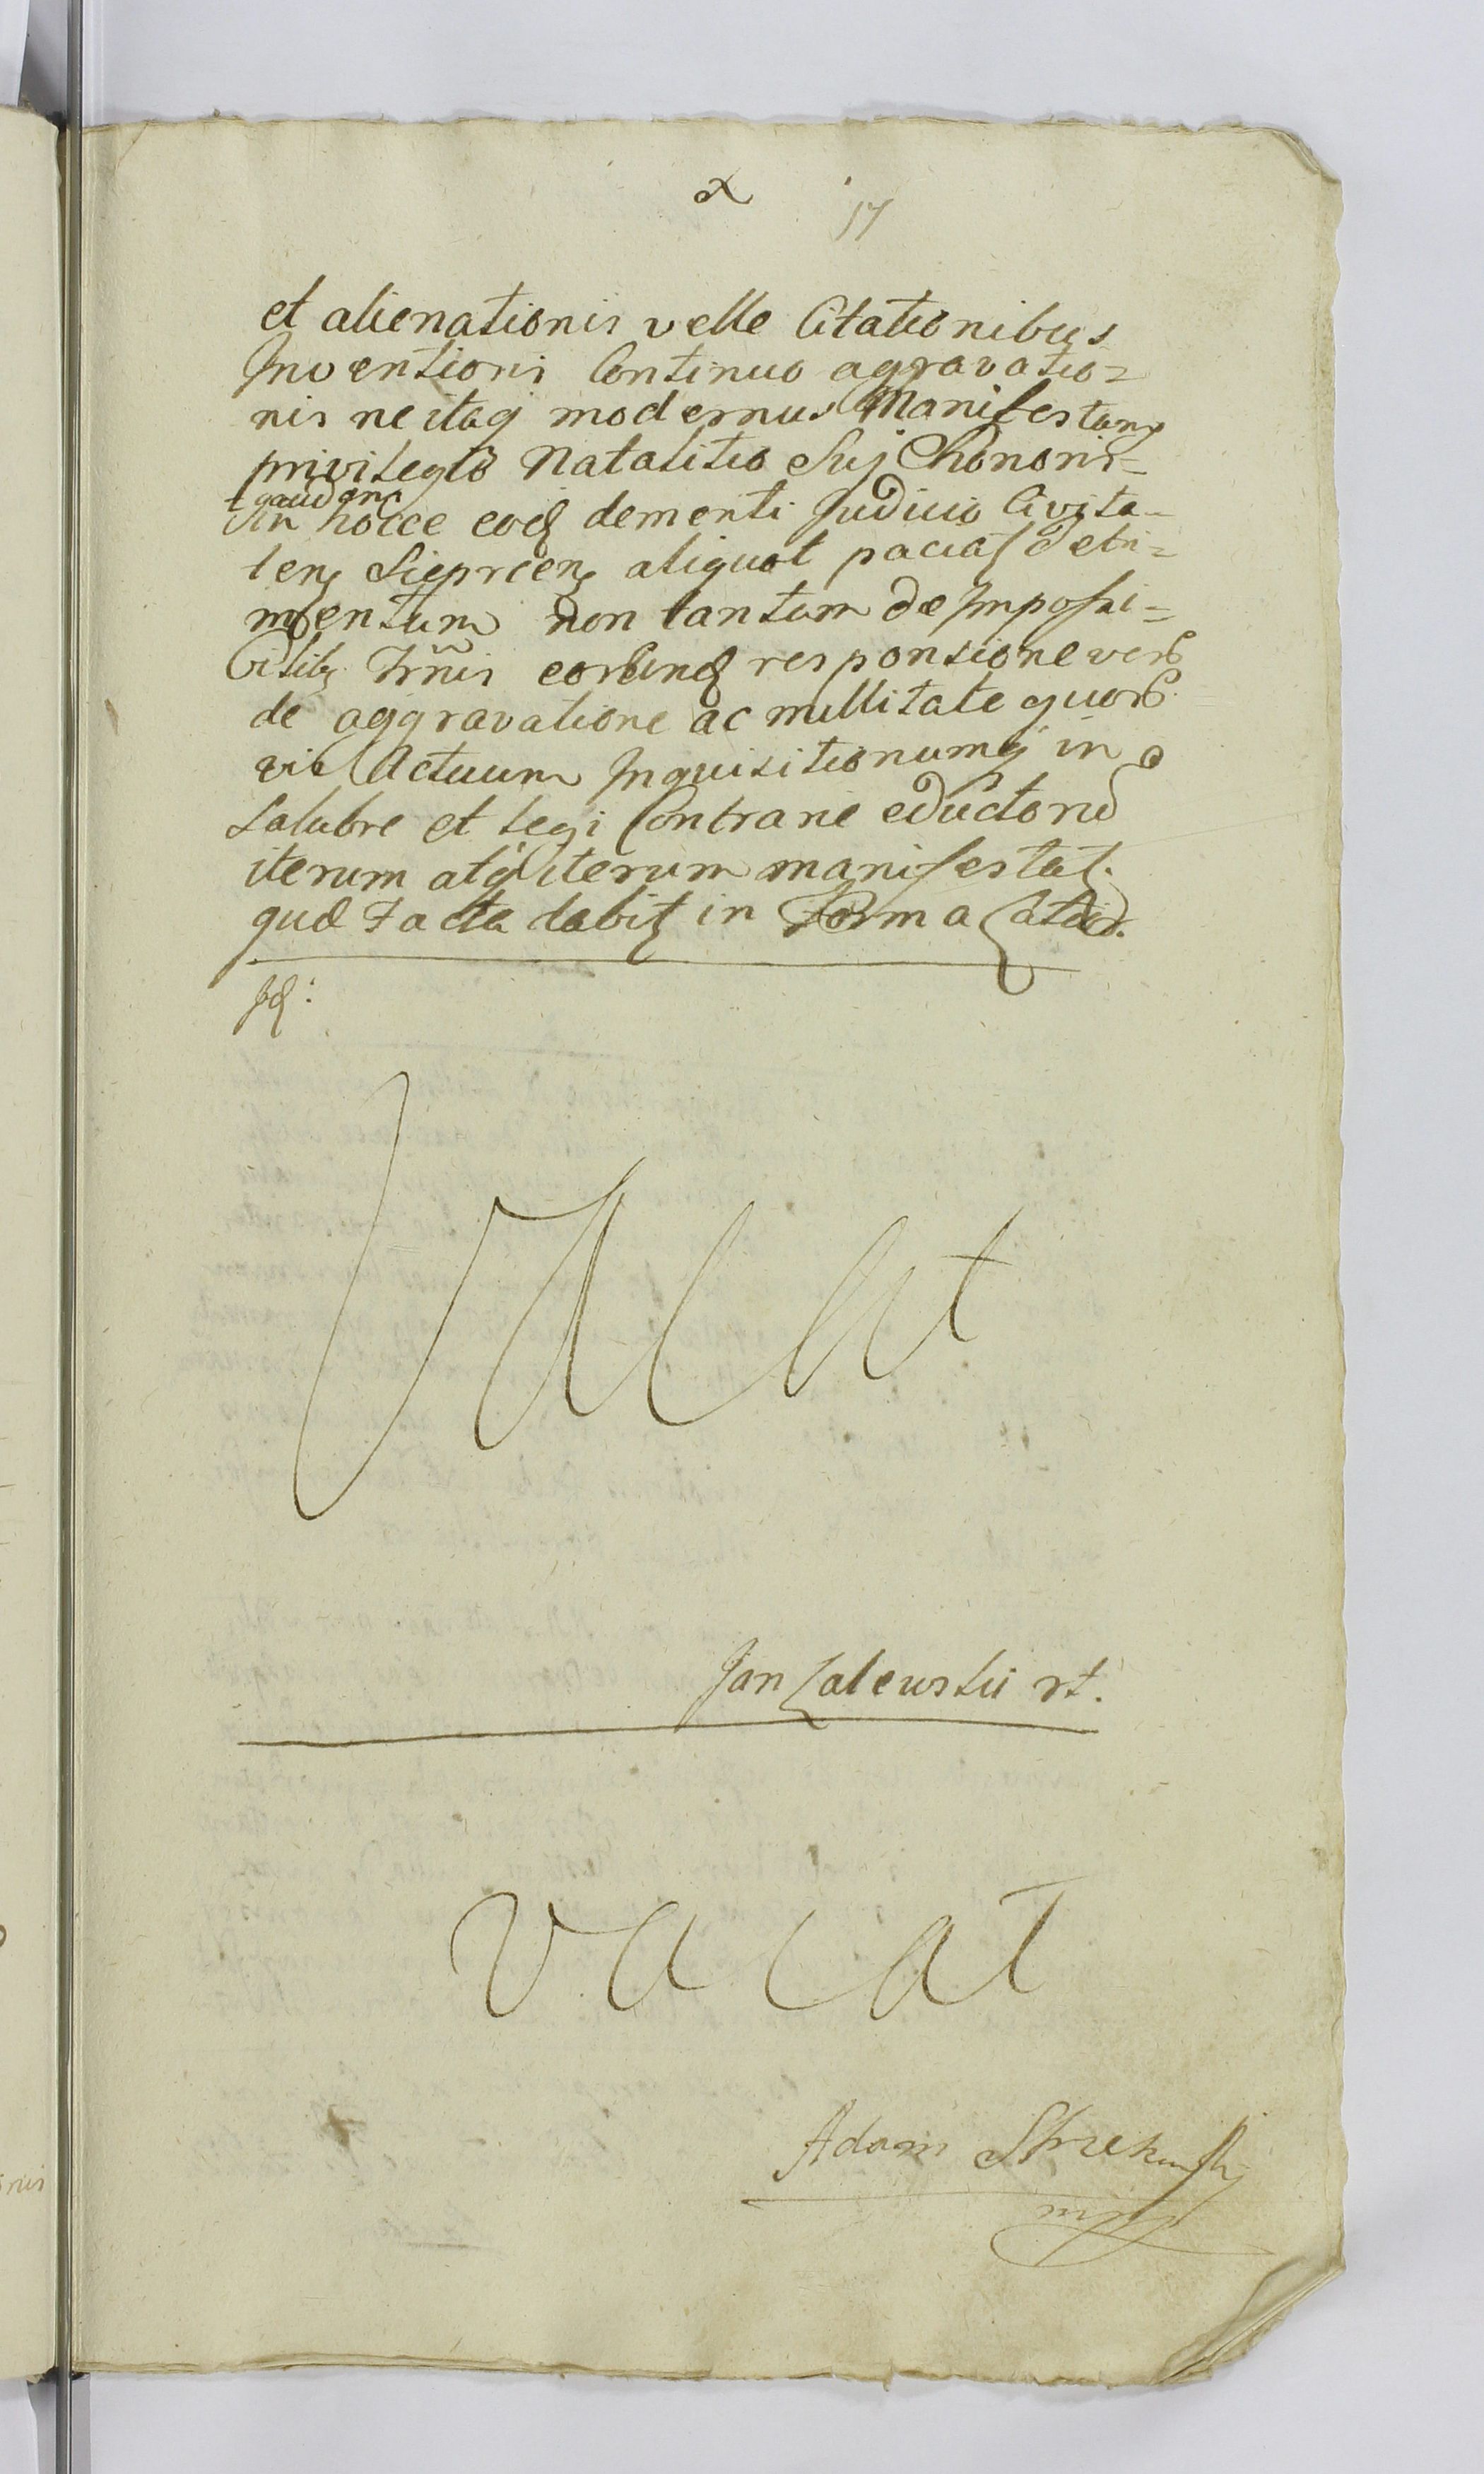 17
et alienationis velle Citationibus
Inventionis Continuo agravatio=
nis ne itaq modernus Manifestans
privilegio Natalitio Suj Chononis-
+ gaudens
in hocce eod dementi Judicio Civita-
tens Sieprcens aliquot paciat detri=
mentum non tantum de Impossi=
bilib Trm̃is eorund responsione vero
de aggravatione ac nullitate quor
vis Actuum Inquisitionumq in
salubre et legi Contrarie eductoru
iterum atq iterum manifestat.
quod Facta dabit in Forma
Id:
Vacat
Jan Zalewskii rt.
vacat
Adam
mpp